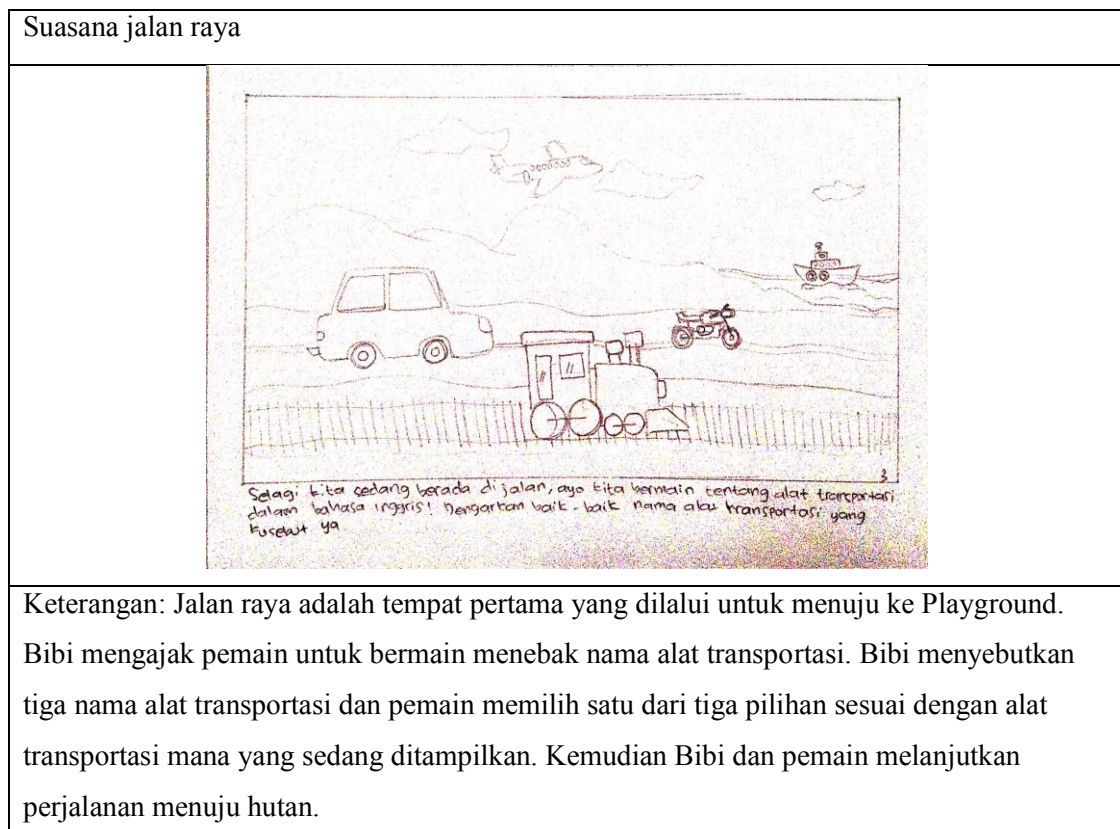 Suasana jalan raya
3
Selagi kita sedang berada di jalan, ayo kita bermain tentang alat transportasi
dalam bahasa inggris! Dengarkan baik-baik nama alat transportasi yang
kusebut ya
Keterangan: Jalan raya adalah tempat pertama yang dilalui untuk menuju ke Playground.
Bibi mengajak pemain untuk bermain menebak nama alat transportasi. Bibi menyebutkan
tiga nama alat transportasi dan pemain memilih satu dari tiga pilihan sesuai dengan alat
transportasi mana yang sedang ditampilkan. Kemudian Bibi dan pemain melanjutkan
perjalanan menuju hutan.